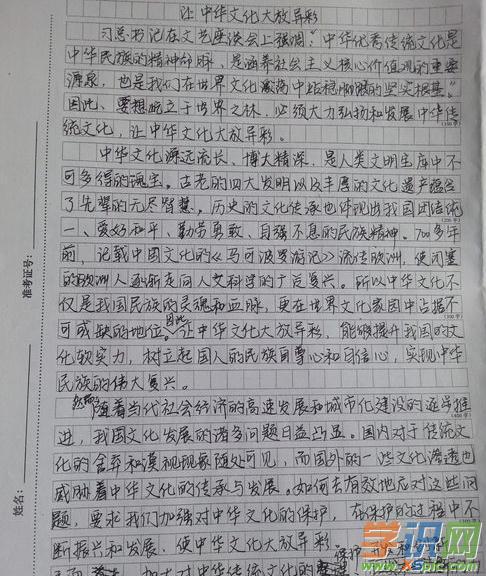 让中华文化大放异彩
习总书记在文艺座谈会上强调："中华优秀传统文化是
中华民族的精神命脉，是涵养社会主义核心价值观的重要
源泉，也是我们在世界文化激荡中站稳脚跟的坚实根基。"
因此，要想屹立于世界之林，必须大力弘扬和发展中华传
统文化，让中华文化大放异彩。
中华文化源远流长、博大精深，是人类文明宝库中不
可多得的瑰宝。古老的四大发明以及丰厚的文化遗产蕴含
了先辈的无尽智慧。历史的文化传承也体现出我国团结统
一、爱好和平、勤劳勇敢、自强不息的民族精神。700多年
前，记载中国文化的《马可波罗游记》流传欧洲，使闭塞
的欧洲人逐渐走向人文科学的广泛复兴。所以中华文化不
仅是我国民族的灵魂和血脉，更在世界文化家园中占据不
可或缺的地位。因此让中华文化大放异彩，能够提升我国的文
化软实力，树立起国人的民族自尊心和自信心，实现中华
民族的伟大复兴。
然而随着当代社会经济的高速发展和城市化建设的逐步推
进，我国文化发展的诸多问题日益凸显。国内对于传统文
化的舍弃和漠视现象随处可见，而国外的一些文化渗透也
威胁着中华文化的传承与发展。如何去有效地应对这些问
题，要求我们加强对中华文化的保护，在保护的过程中不
断振兴和发展，使中华文化大放异彩
准考证号：
姓名：
学识网
www.xSpic.com